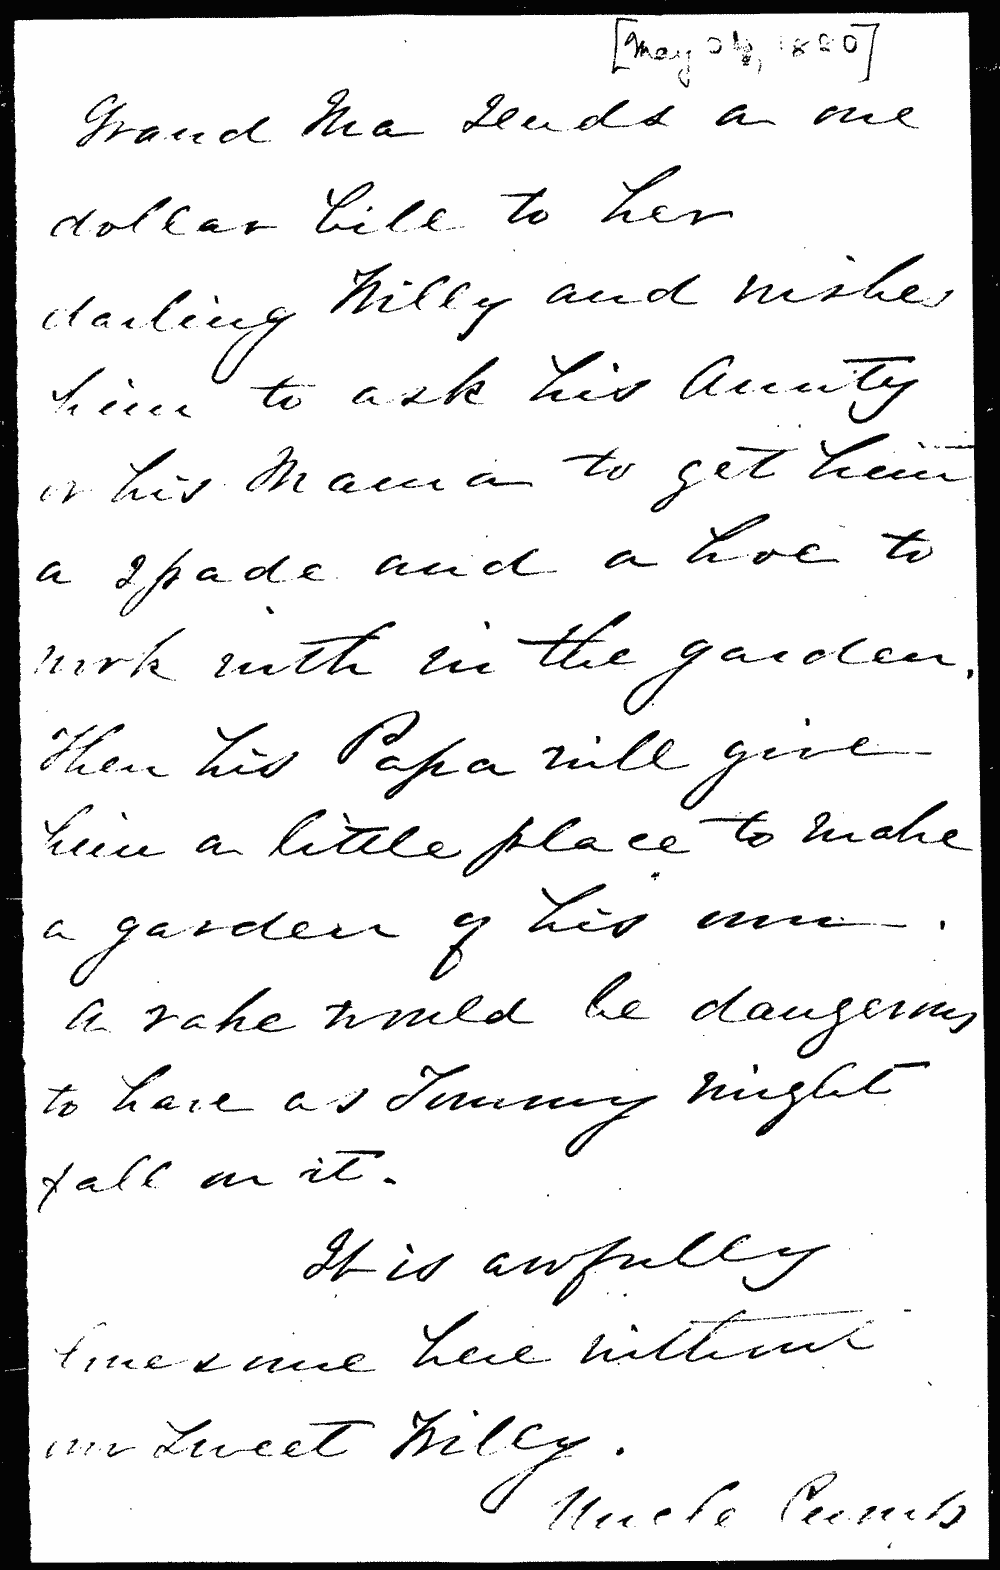 [May 1880]
Grand Ma sends a one
dollar bill to her
darling Willy and wishes
him to ask his Aunty
or his Mama to get him
a spade and a hoe to
work with in the garden.
Then his Papa will give
him a little place to make
a garden of his own.
A rake would be dangerous
to have as Tommy might
fall on it.
It is awfully
lonesome here without
our sweet Willy.
Uncle